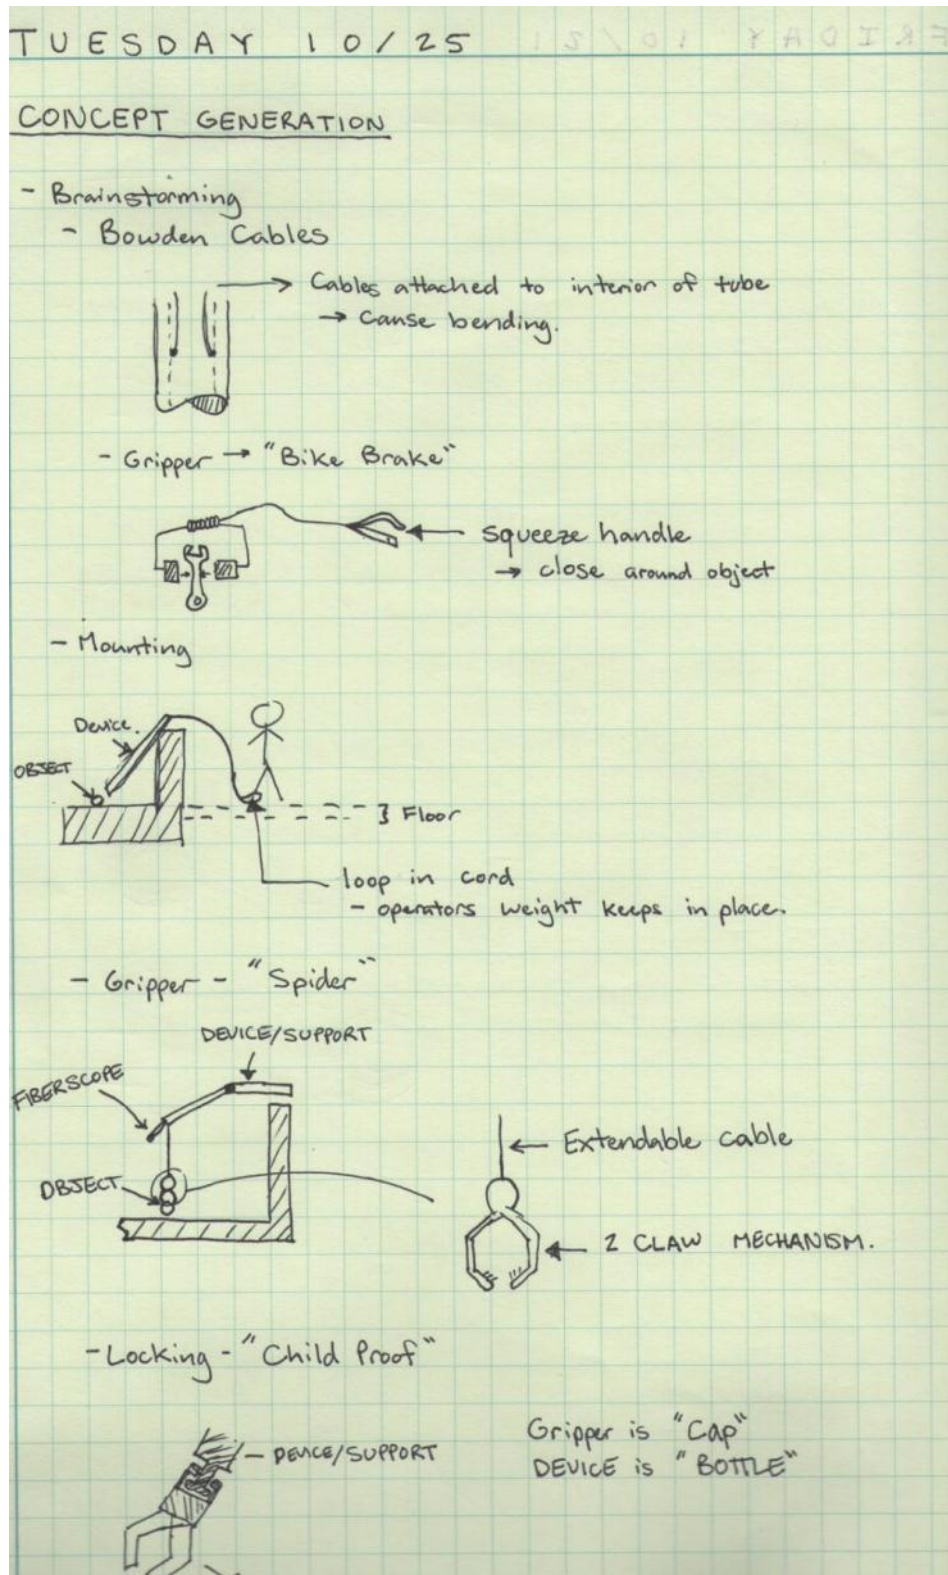 TUESDAY 10/25
FRIDAY 10/21
CONCEPT GENERATION
- Brainstorming
- Bowden Cables
→ Cables attached to interior of tube
→ Cause bending.
- Gripper → "Bike Brake"
squeeze handle
→ close around object
- Mounting
Device.
OBJECT
} Floor
loop in cord
- operators weight keeps in place.
- Gripper - "Spider"
DEVICE/SUPPORT
FIBERSCOPE
Extendable cable
OBJECT
2 CLAW MECHANISM.
- Locking - "Child Proof"
Gripper is "Cap"
DEVICE/SUPPORT
DEVICE is "BOTTLE"